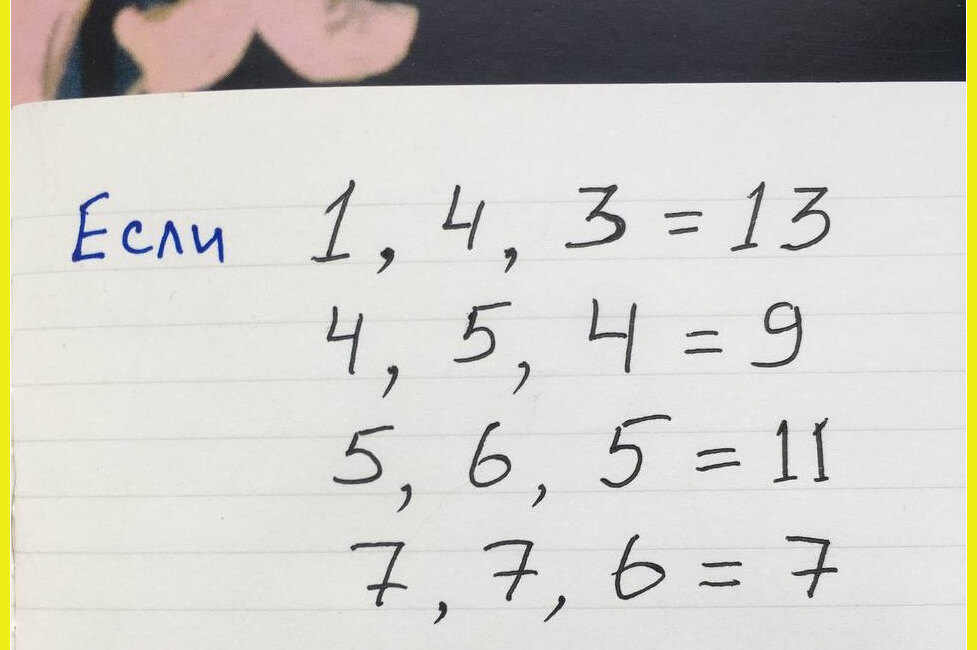 Если 1, 4, 3 = 13
4, 5, 4 = 9
5, 6, 5 = 11
7, 7, 6 = 7